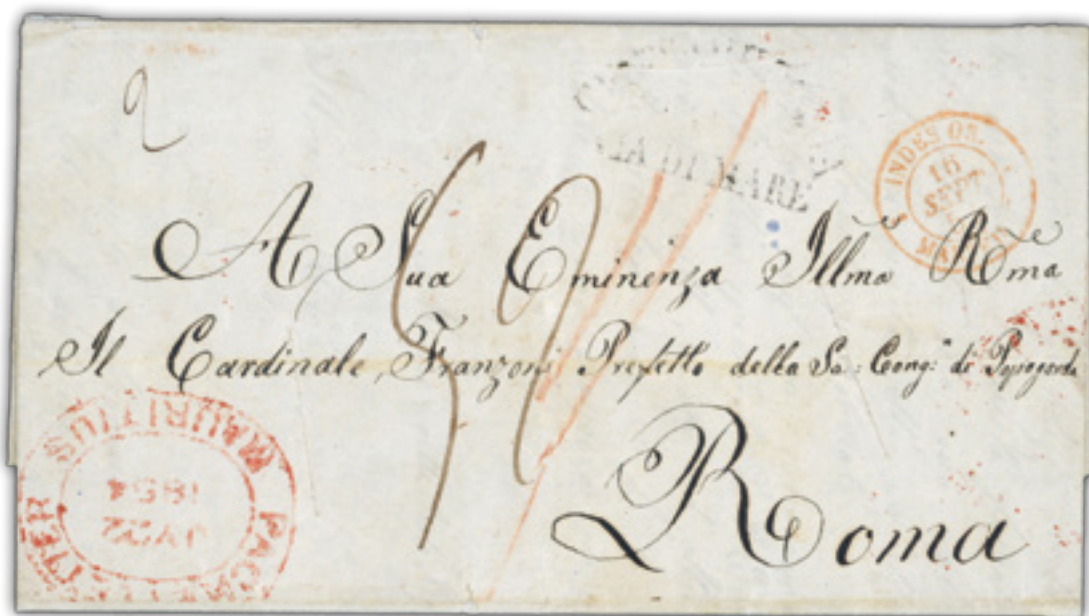 2
VIA DI MARE
INDES OR.
16
SEPT
A Sua Eminenza Illma Rma
Il Cardinale Franzoni Prefetto della Sa: Cong: di Propaganda
Roma
MAURITIUS
1854